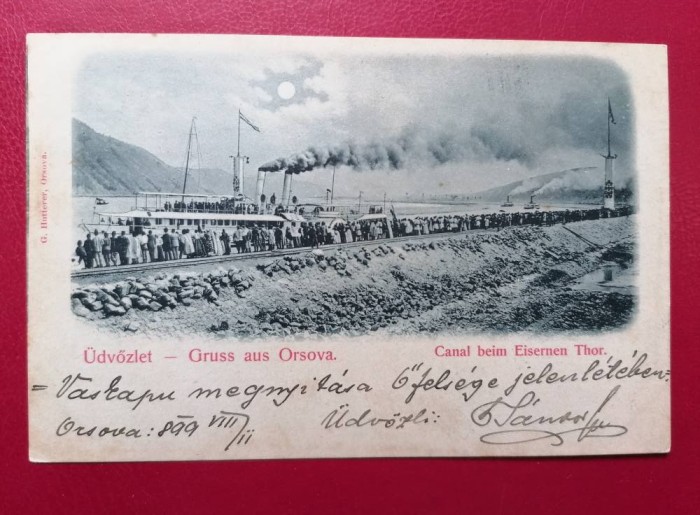 G. Hutterer, Orsova.
Üdvőzlet – Gruss aus Orsova.
Canal beim Eisernen Thor.
= Vaskapu megnyitása Ő felsége jelenlétében =
Orsova: 899 VIII/II
Üdvözli: Sándor